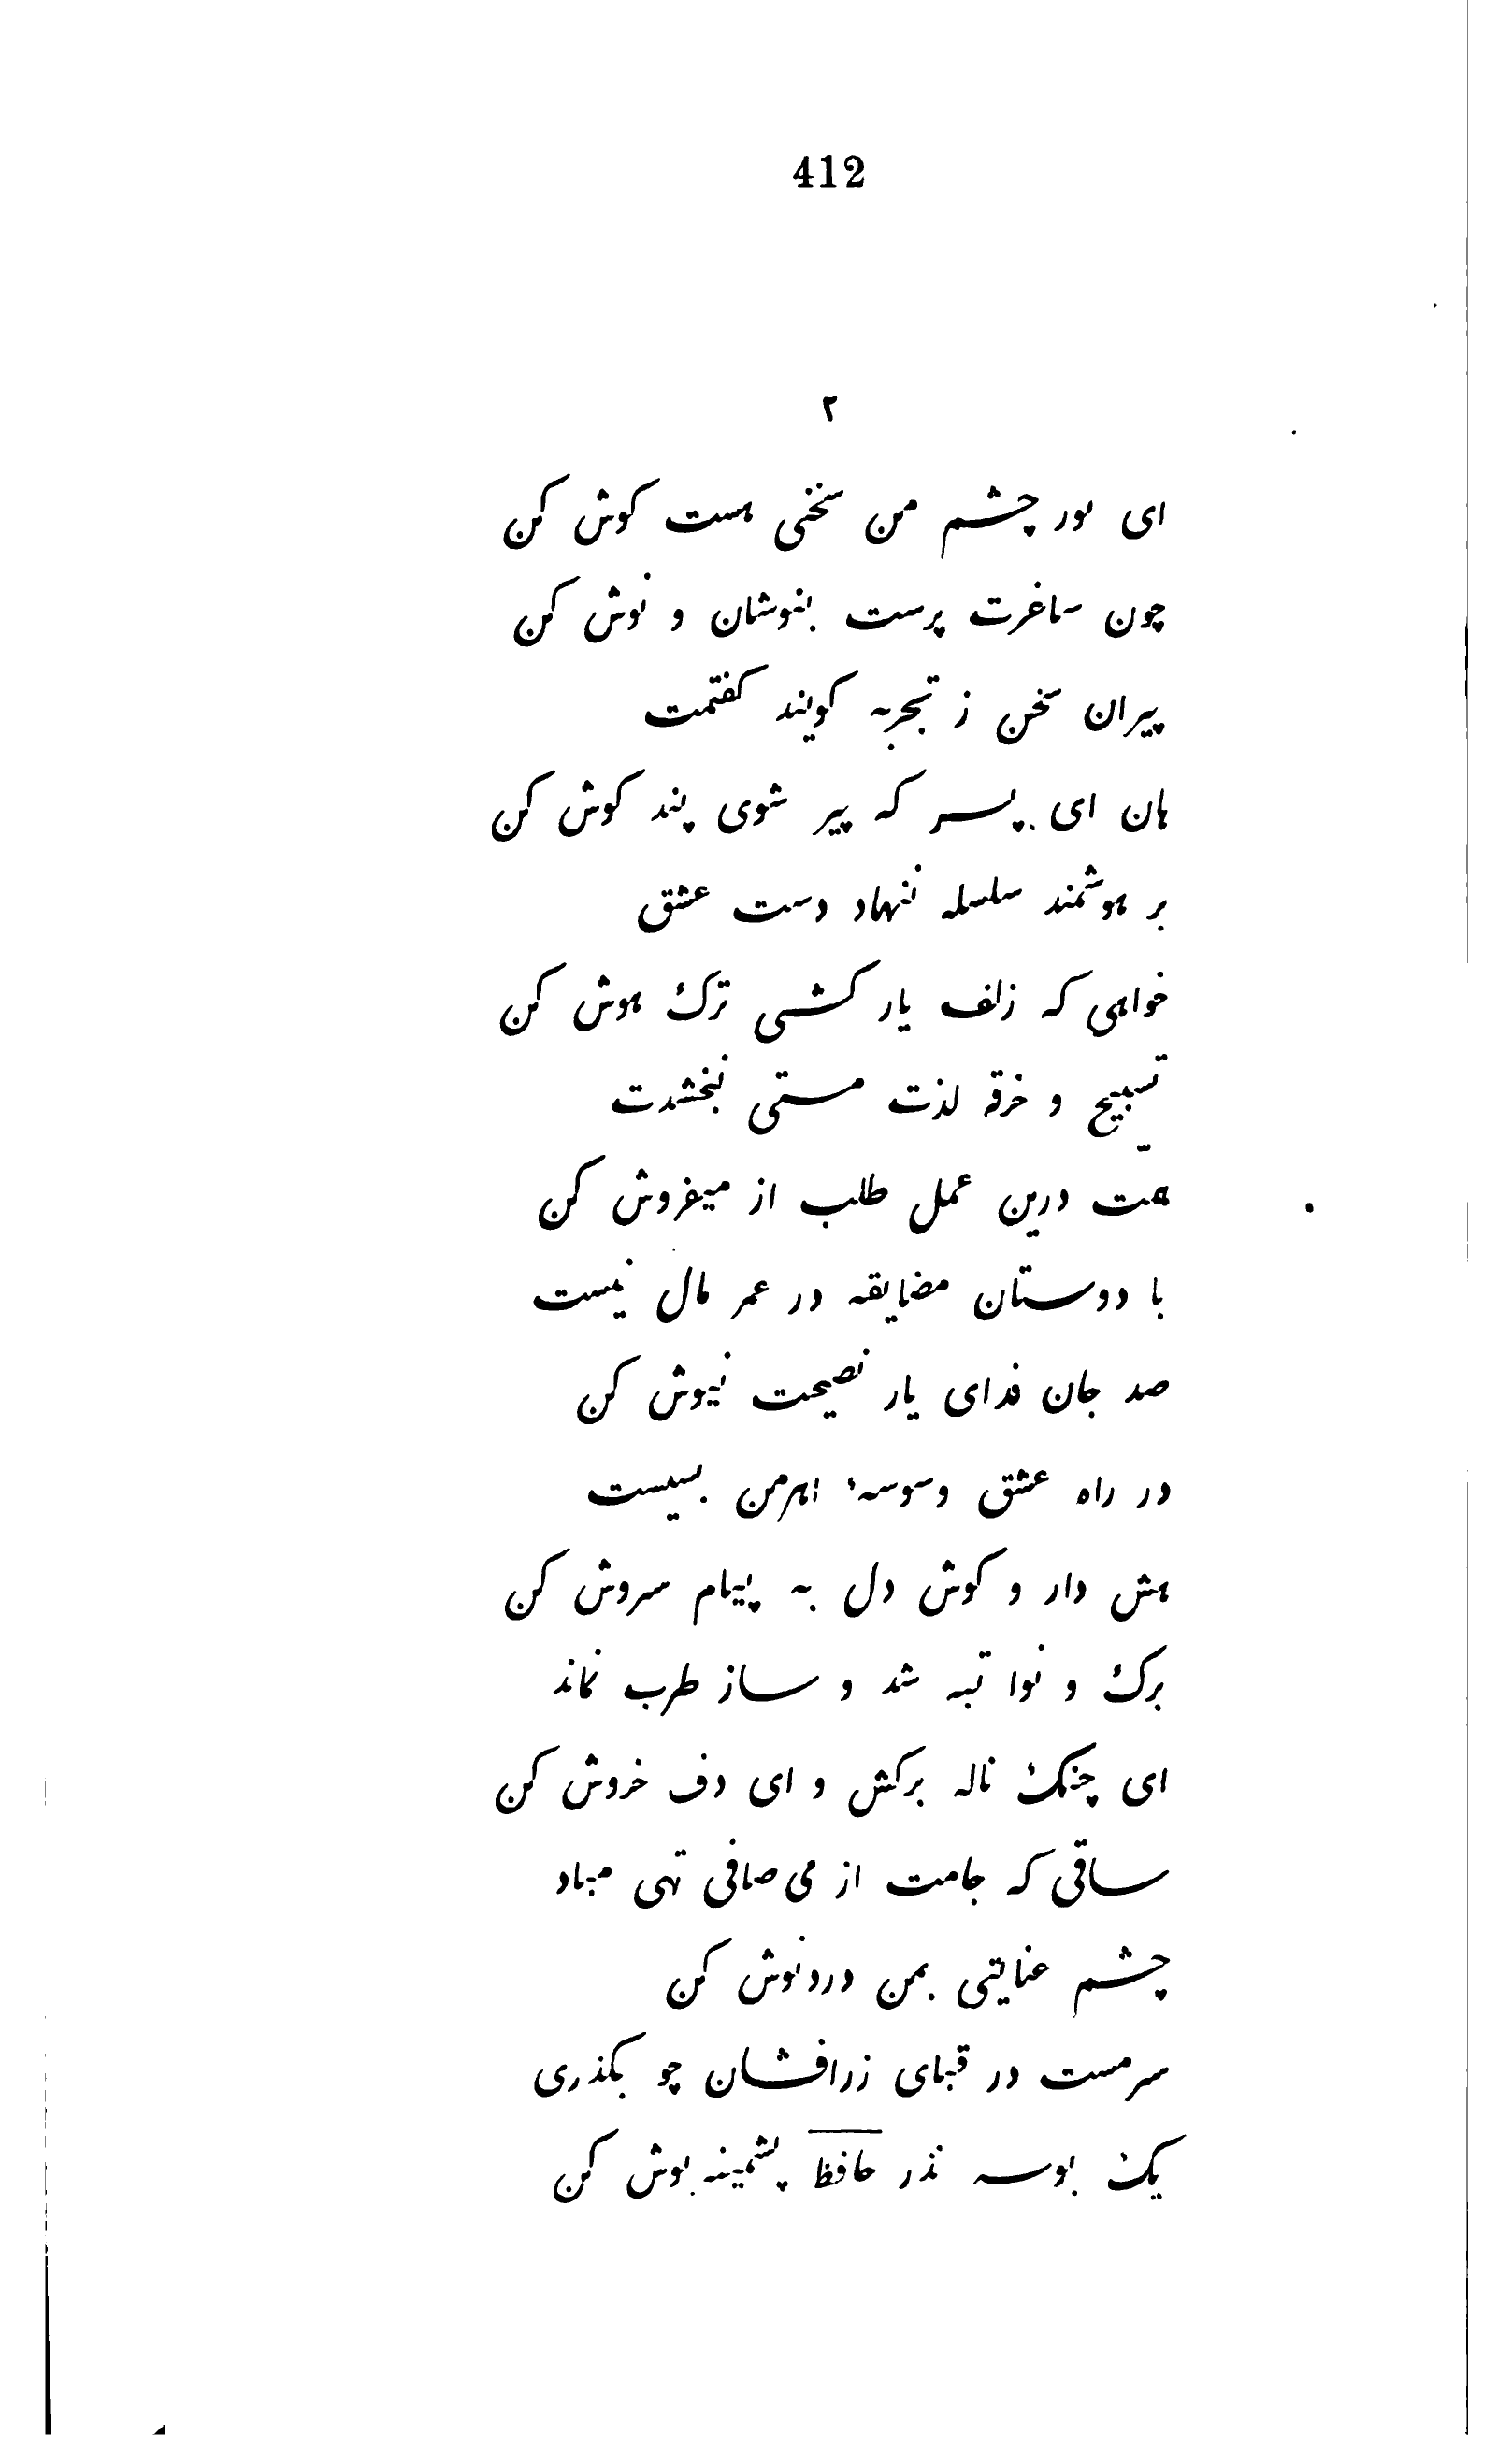 412
۲
ای نور چشم من سخنی هست کوش کن
چون ساغرت پرست بنوشان و نوش کن
پیران سخن ز تجربه کویند کفتمت
هان ای پسر که پیر شوی پند کوش کن
بر هوشمند سلسله ننهاد دست عشق
خواهی که زلف یار کشی ترک هوش کن
تسبیح و خرقه لذت مستی نبخشدت
همّت درین عمل طلب از میفروش کن
با دوستان مضایقه در عمر مال نیست
صد جان فدای یار نصیحت نیوش کن
در راه عشق وسوسهٔ اهرمن بسیست
هش دار و کوش دل به پیام سروش کن
برک و نوا تبه شد و ساز طرب نماند
ای چنک ناله برکش و ای دف خروش کن
ساقی که جامت از می صافی تهی مباد
چشم عنایتی بمن دردنوش کن
سرمست در قبای زرافشان چو بکذری
یک بوسه نذر حافظ پشمینه پوش کن